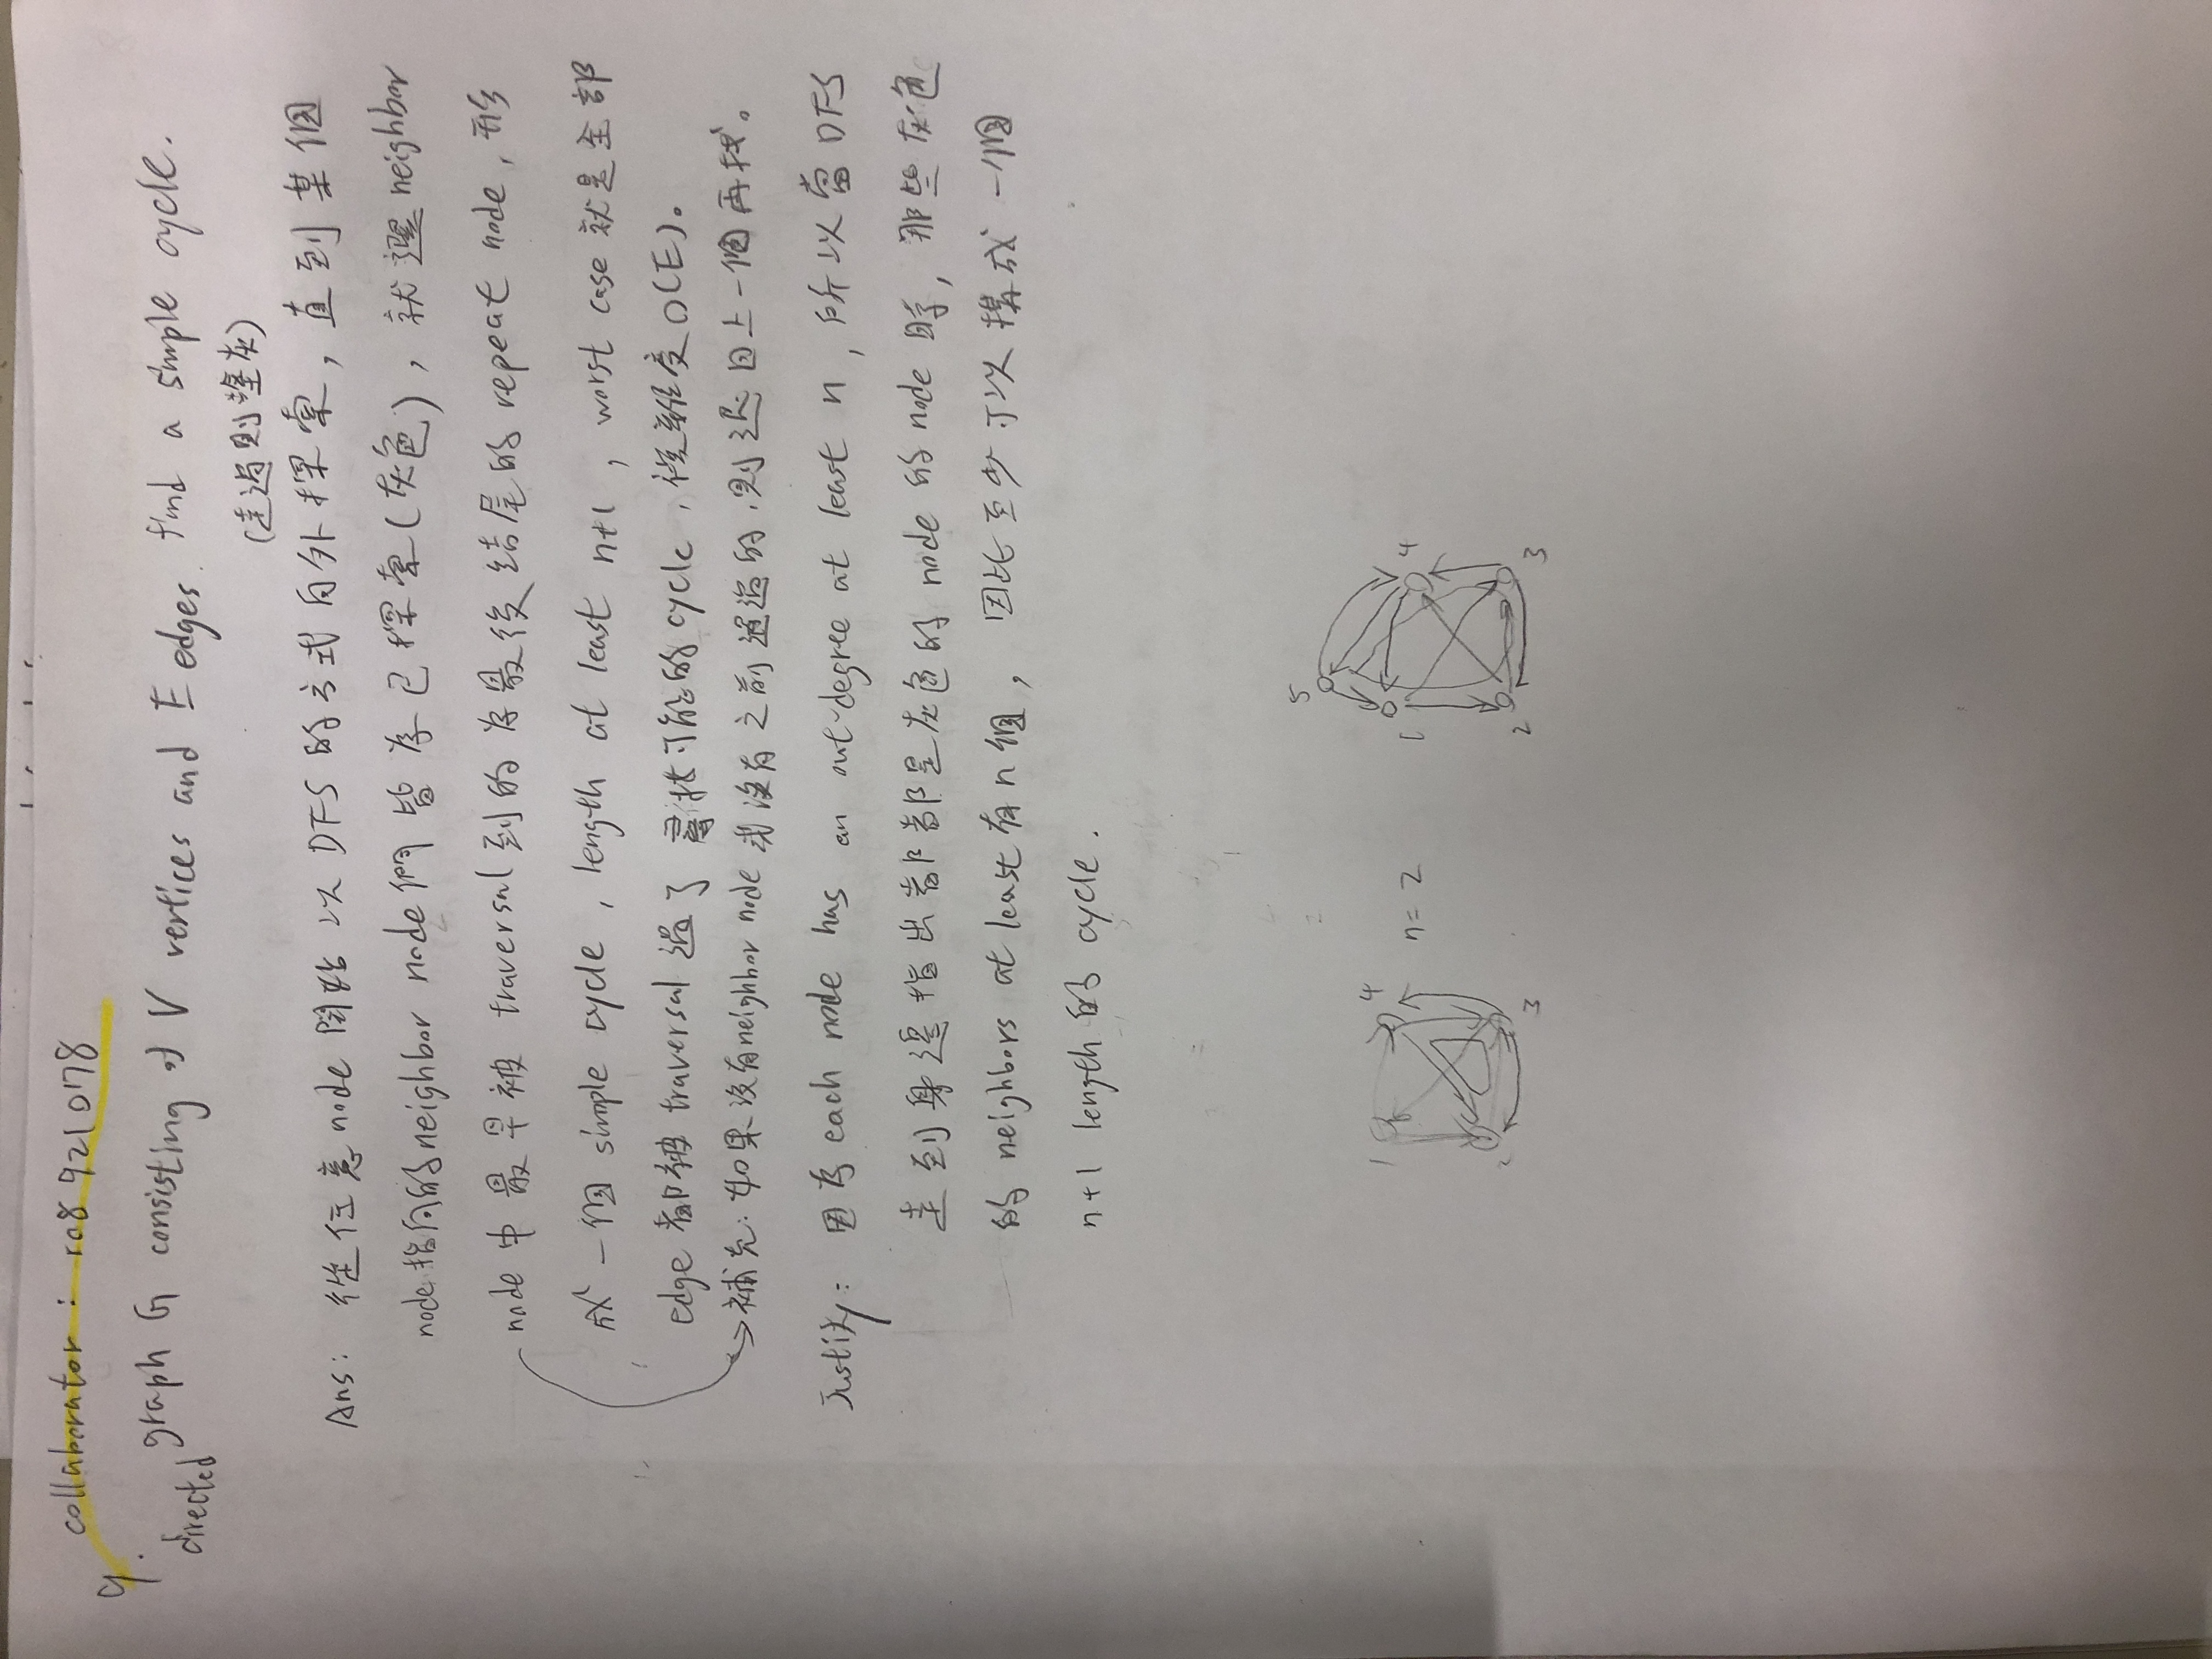 collaborator : r08921078
9.
directed graph G consisting of V vertices and E edges. find a simple cycle.
(走過則塗灰)
Ans: 從任意node開始以DFS的方式向外探索，直到某個
node指向的neighbor node們皆為已探索(灰色)，就選neighbor
node中最早被traversal到的為最後結尾的repeat node，形
成一個simple cycle, length at least n+1, worst case就是全部
edge都被traversal過了尋找可能的cycle，複雜度O(E)。
補充:如果沒有neighbor node或沒有之前通過的,則退回上一個再找。
Justify: 因為each node has an out-degree at least n, 所以當DFS
走到身邊指出都都是灰色的node的node時，那些灰色
的neighbors at least有n個，因此至少可以構成一個
n+1 length的cycle.
5
1 4 n=2 1 4
2 3 2 3